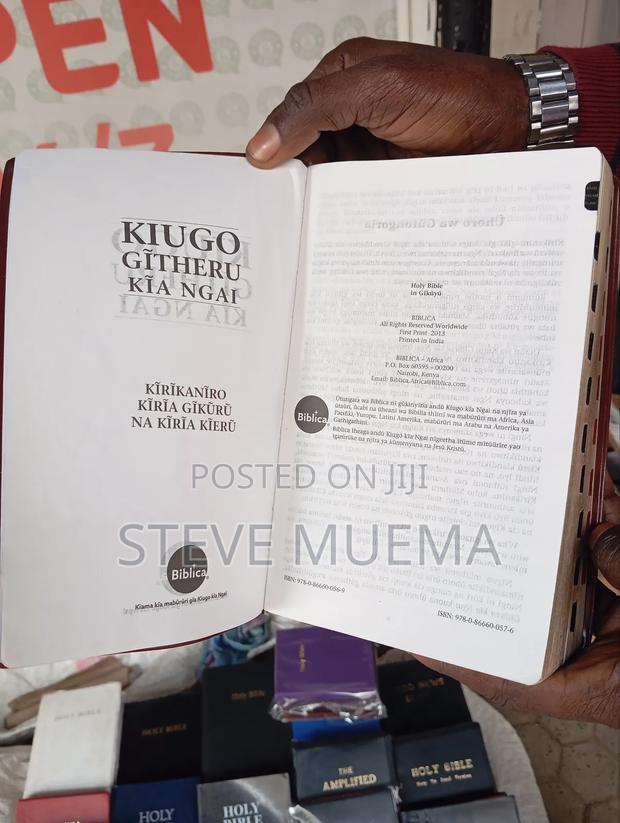 PEN
KIUGO
GĨTHERU
KĨA NGAI
KĨRĨKANĨRO
KĨRĨA GĨKŨRŨ
NA KĨRĨA KĨERŨ
Biblica
Kĩama kĩa mabũrũri gĩa Kiugo kĩa Ngai
Holy Bible
in Gĩkũyũ
BIBLICA
All Rights Reserved Worldwide
First Print 2013
Printed in India
BIBLICA – Africa
P.O. Box 60595 – 00200
Nairobi, Kenya
Email: Biblica.Africa@Biblica.com
Biblica
Ũtungata wa Biblica nĩ gũkinyĩria andũ Kiugo kĩa Ngai na njĩra ya
ũtaũri, ũcabi na ũheani wa Biblia thĩinĩ wa mabũrũri ma Africa, Asia
Pacifiki, Yuropu, Latini Amerika, mabũrũri ma Arabu na Amerika ya
Gathigathini.
Biblica ĩheaga andũ Kiugo kĩa Ngai nĩgeetha ĩtũme mĩtũũrĩre yao
ĩgarũrũke na njĩra ya kũmenyana na Jesũ Kristũ.
ISBN: 978-0-86660-056-9
ISBN: 978-0-86660-057-6
POSTED ON JIJI
STEVE MUEMA
Holy Bible
HOLY BIBLE
HOLY BIBLE
Holy Bible
GOOD NEWS
THE
AMPLIFIED
HOLY BIBLE
HOLY
HOLY
BIBLE